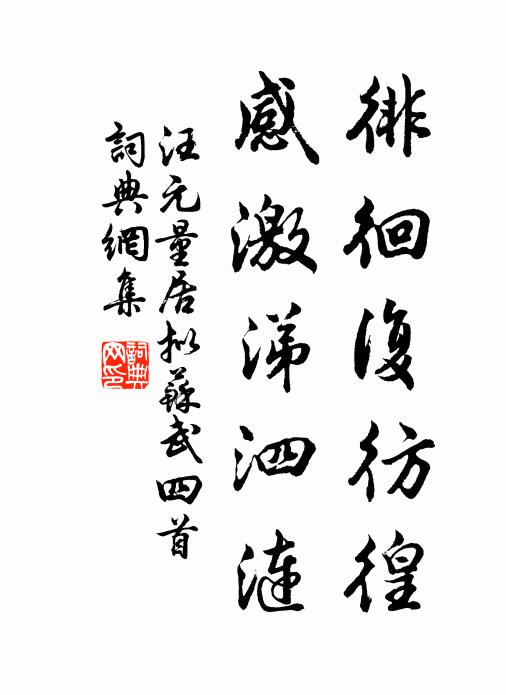 徘徊復彷徨
感激涕泗漣
汪元量居拟蘇武四首
詞典網集
詞典网印